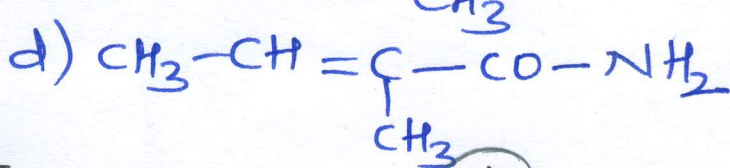 CH3
d) CH3-CH=C-CO-NH2
CH3